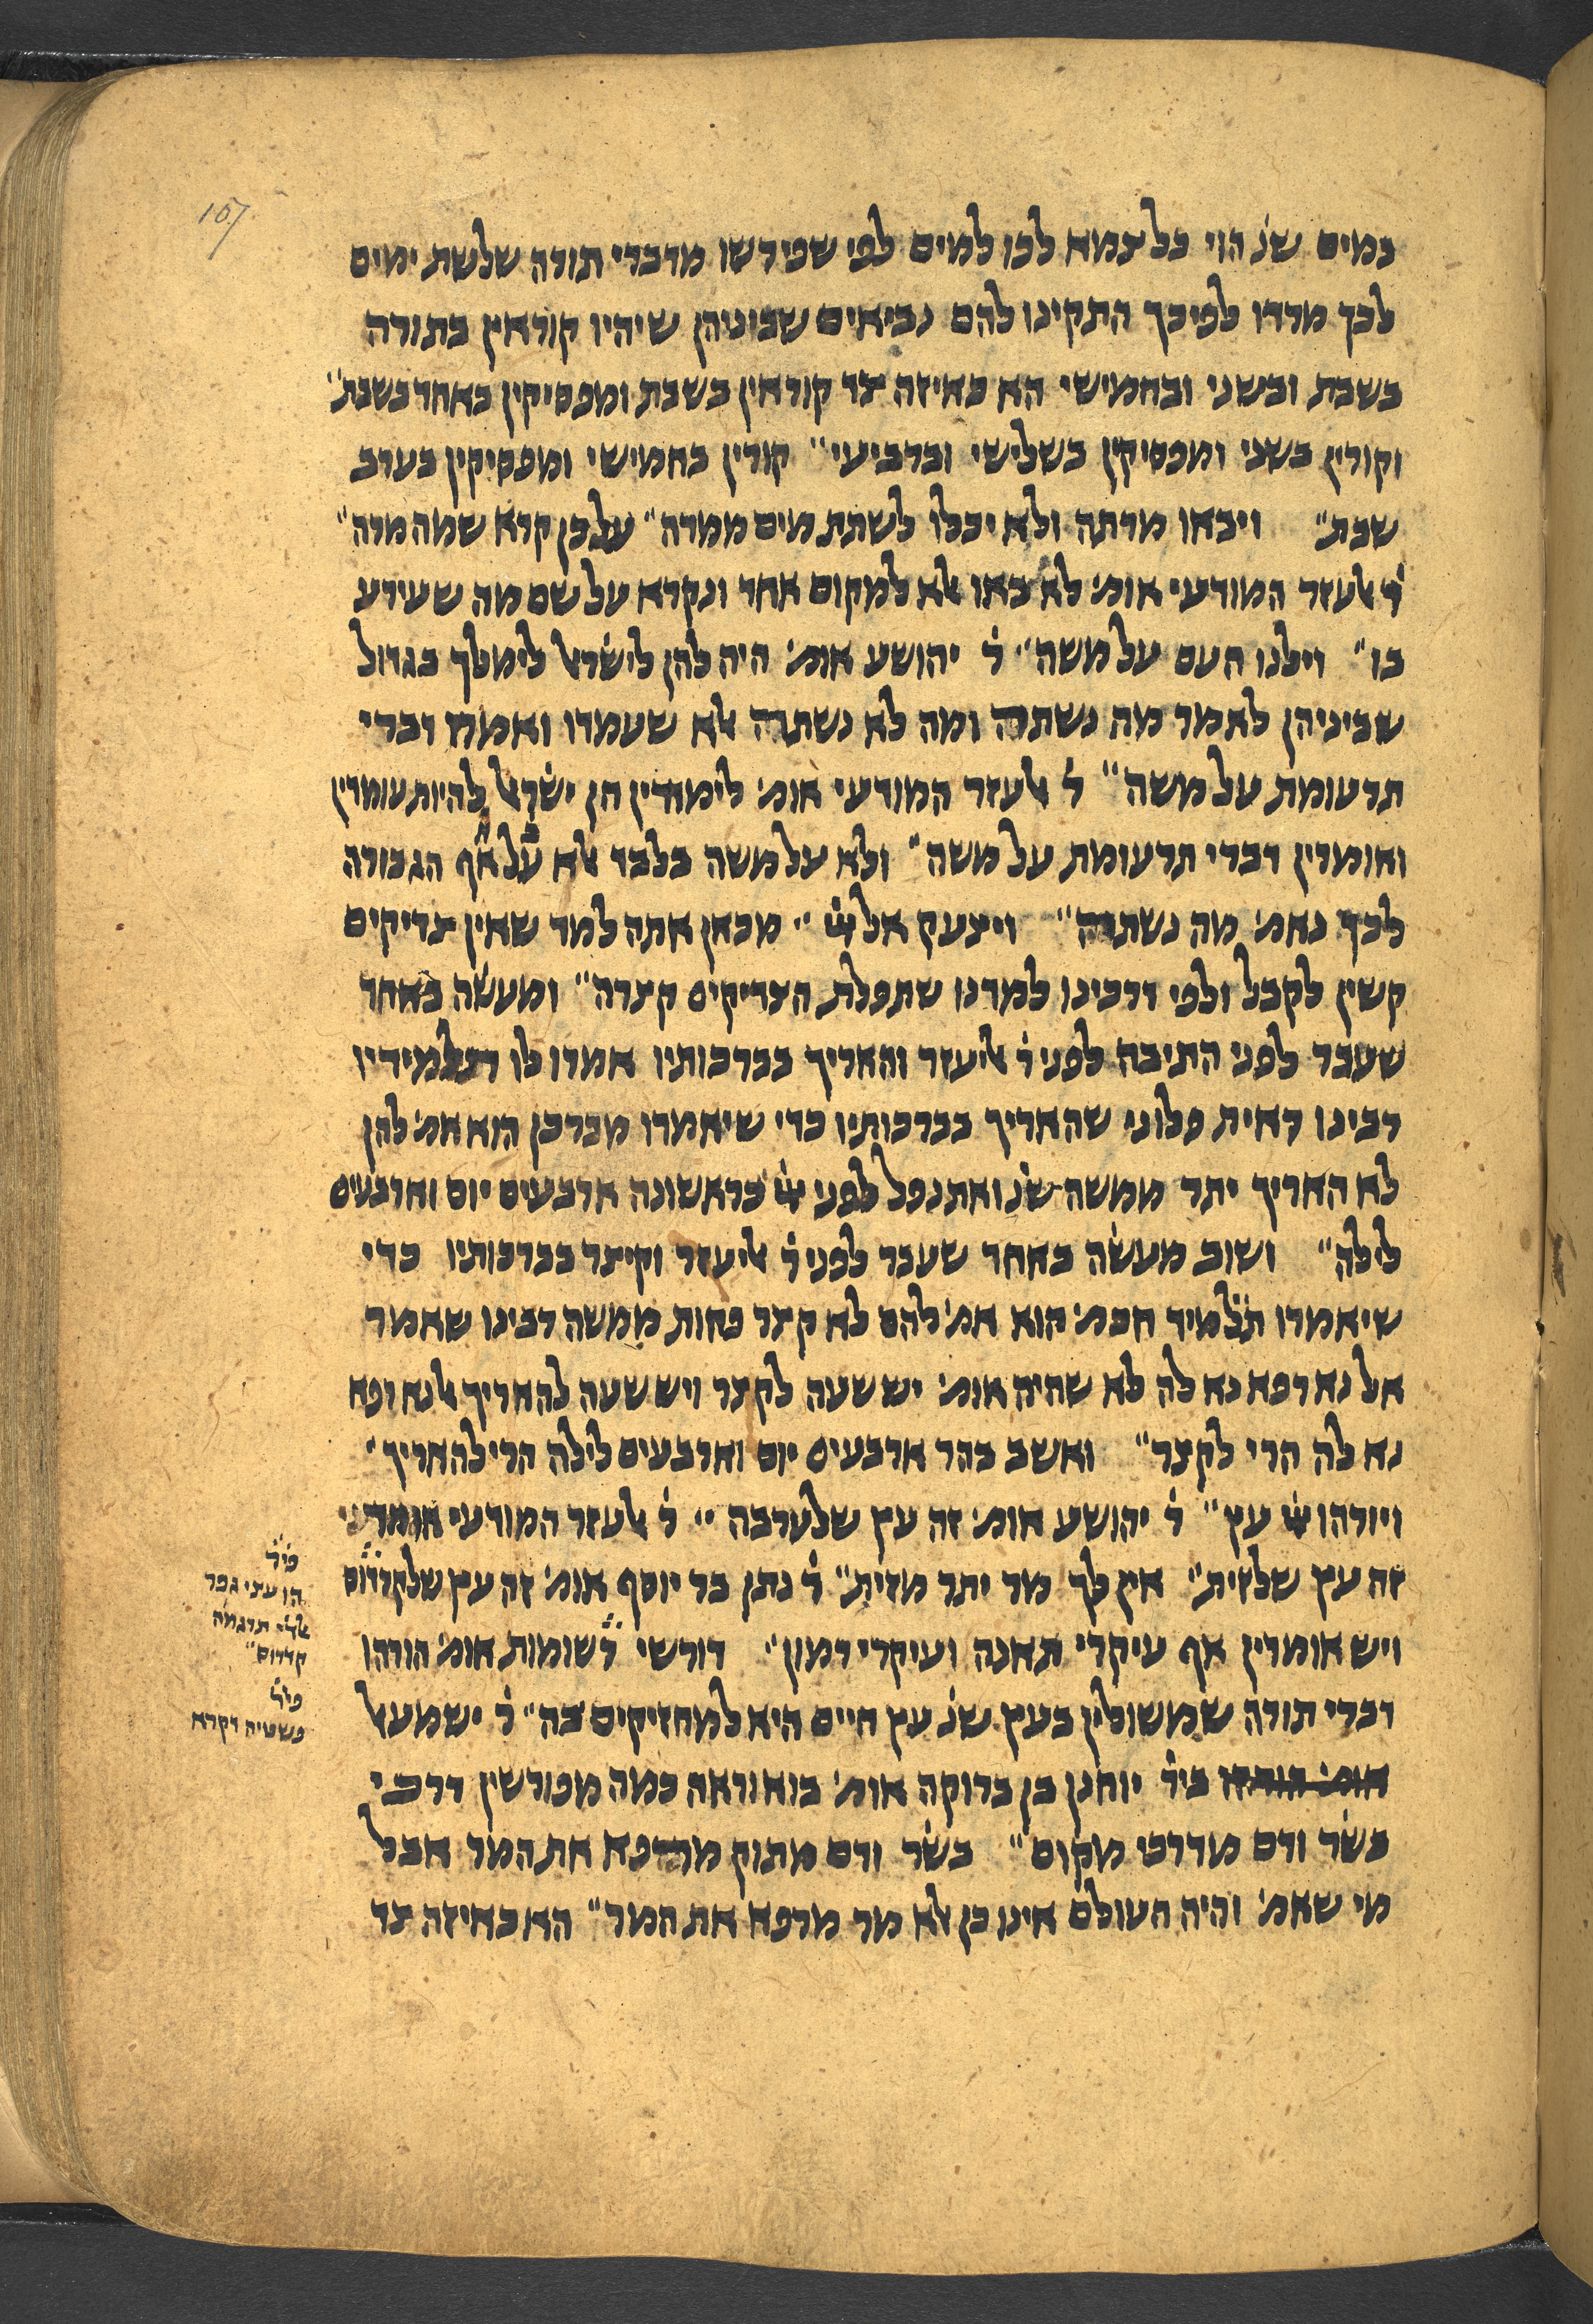 107
במים שנ׳ הוי כל צמא לכו למים לפי שפירשו מדברי תורה שלשת ימים
לכך מרדו לפיכך התקינו להם נביאים שביניהן שיהיו קוראין בתורה
בשבת ובשני ובחמישי הא באיזה צד קוראין בשבת ומפסיקין באחד בשבת״
וקורין בשני ומפסיקין בשלישי וברביעי״ קורין בחמישי ומפסיקין בערב
שבת״ ויבאו מרתה ולא יכלו לשתת מים ממרה״ על כן קרא שמה מרה״
ר׳ אלעזר המודעי אומ׳ לא באו אלא למקום אחד ונקרא על שם מה שעירע
בו״ וילנו העם על משה״ ר׳ יהושע אומ׳ היה להן לישראל לימלך בגדול
שביניהן לאמר מה נשתה ומה לא נשתה אלא שעמדו ואמרו דברי
תרעומת על משה״ ר׳ אלעזר המודעי אומ׳ לימודין הן ישראל להיות עומדין
ואומרין דברי תרעומת על משה״ ולא על משה בלבד אלא על אף הגבורה
לכך נאמ׳ מה נשתה״ ויצעק אל יי׳ ״ מכאן אתה למד שאין צדיקים
קשין לקבל ולפי דרכינו למדנו שתפלת הצדיקים קצרה״ ומעשה באחד
שעבר לפני התיבה לפני ר׳ אליעזר והאריך בברכותיו אמרו לו תלמידיו
רבינו ראית פלוני שהאריך בברכותיו כדי שיאמרו מברכן הוא אמ׳ להן
לא האריך יתר ממשה שנ׳ ואתנפל לפני יי׳ כראשונה ארבעים יום וארבעים
לילה״ ושוב מעשה באחד שעבר לפני ר׳ אליעזר וקיצר בברכותיו כדי
שיאמרו תלמיד חכמ׳ הוא אמ׳ להם לא קצר פחות ממשה רבינו שאמר
אל נא רפא נא לה לא שהיה אומ׳ יש שעה לקצר ויש שעה להאריך אל נא רפא
נא לה הרי לקצר״ ואשב בהר ארבעים יום וארבעים לילה הרי להאריך׳
ויורהו יי׳ עץ״ ר׳ יהושע אומ׳ זה עץ שלערבה ״ ר׳ אלעזר המודעי אומר
זה עץ שלזית״ אין לך מר יתר מזית״ ר׳ נתן בר יוסף אומ׳ זה עץ שלקדרוס
ויש אומרין אף עיקרי תאנה ועיקרי רמון״ דורשי רשומות אומ׳ הורהו
דברי תורה שמשולין בעץ שנ׳ עץ חיים היא למחזיקים בה״ ר׳ ישמעאל
ביר׳ יוחנן בן ברוקה אומ׳ בוא וראה כמה מפורשין דרכי
בשר ודם מדרכי מקום״ בשר ודם מתוק מרפא את המר אבל
מי שאמ׳ והיה העולם אינו כן אלא מר מרפא את המר״ הא באיזה צד
פיר׳
הו עצי גפר
תרגמה
קדרוס״
פיר׳
פשטיה דקרא